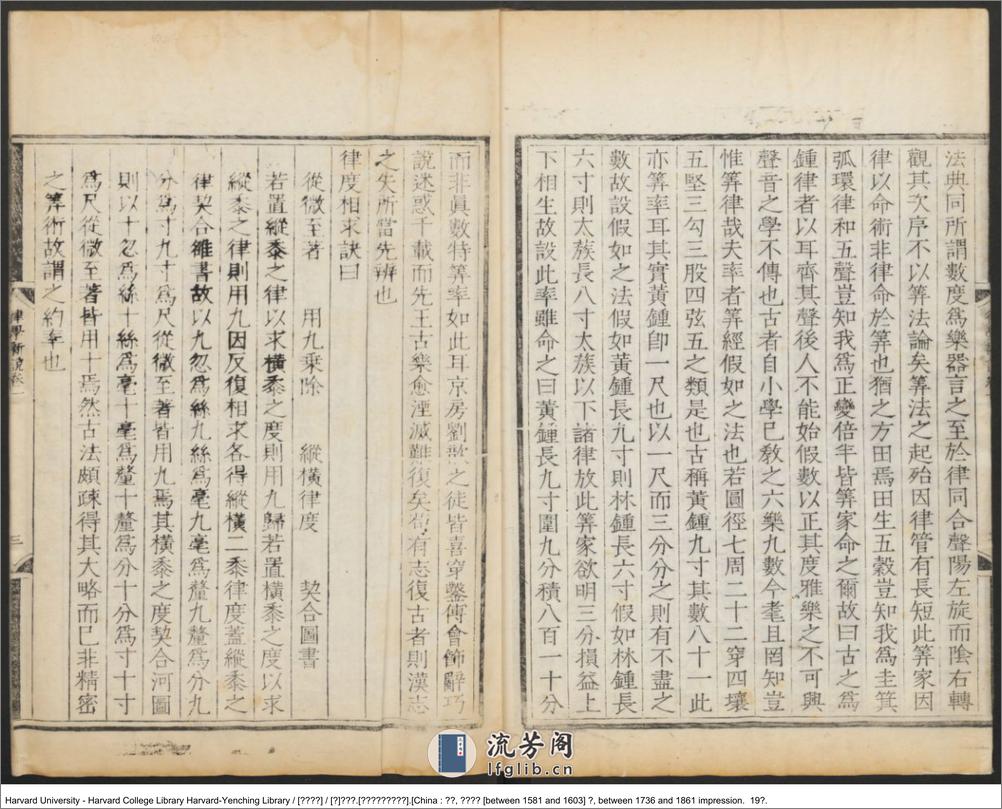 法典同所謂數度爲樂器言之至於律同合聲陽左旋而陰右轉
觀其次序不以筭法論矣筭法之起殆因律管有長短此筭家因
律以命術非律命於筭也猶之方田焉田生五穀豈知我爲圭箕
弧環律和五聲豈知我爲正變倍半皆筭家命之爾故曰古之爲
鍾律者以耳齊其聲後人不能始假數以正其度雅樂之不可興
聲音之學不傳也古者自小學已敎之六樂九數今耄且罔知豈
惟筭律哉夫率者筭經假如之法也若圓徑七周二十二穿四壤
五堅三勾三股四弦五之類是也古稱黃鍾九寸其數八十一此
亦筭率耳其實黃鍾卽一尺也以一尺而三分分之則有不盡之
數故設假如之法假如黃鍾長九寸則林鍾長六寸假如林鍾長
六寸則太族長八寸太族以下諸律放此筭家欲明三分損益上
下相生故設此率雖命之曰黃鍾長九寸圍九分積八百一十分
而非眞數特筭率如此耳京房劉歆之徒皆喜穿鑿傅會飾辭巧
說迷惑千載而先王古樂愈湮滅難復矣苟有志復古者則漢志
之失所當先辨也
律度相求訣曰
從微至著 用九乘除 縱橫律度 契合圖書
若置縱黍之律以求橫黍之度則用九歸若置橫黍之度以求
縱黍之律則用九因反復相求各得縱橫二黍律度蓋縱黍之
律契合雒書故以九忽爲絲九絲爲毫九毫爲釐九釐爲分九
分爲寸九寸爲尺從微至著皆用九焉其橫黍之度契合河圖
則以十忽爲絲十絲爲毫十毫爲釐十釐爲分十分爲寸十寸
爲尺從微至著皆用十焉然古法頗疎得其大略而已非精密
之筭術故謂之約率也
律學新說卷一
三
流芳阁
lfglib.cn
Harvard University - Harvard College Library Harvard-Yenching Library / [????] / [?]???.[?????????].[China : ??, ???? [between 1581 and 1603] ?, between 1736 and 1861 impression. 19?.